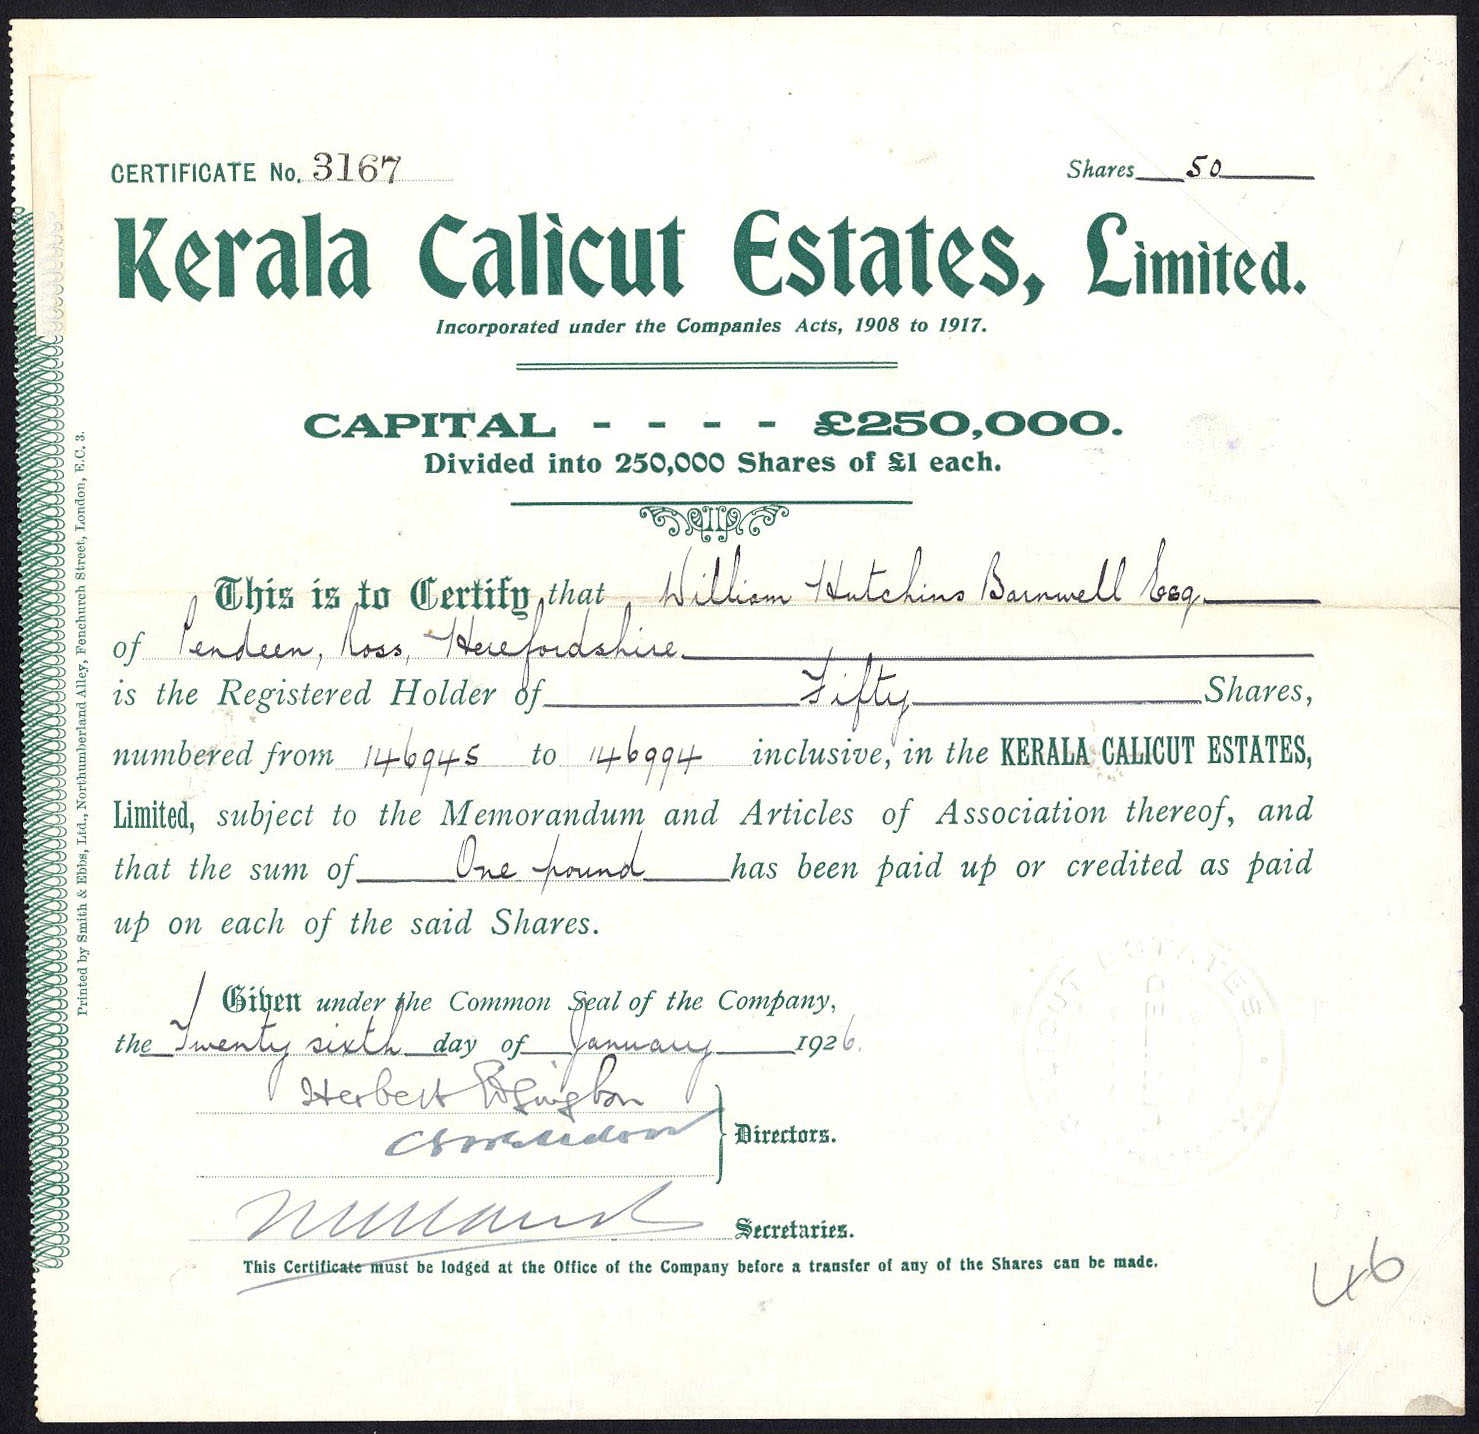 CERTIFICATE No. 3167
Shares 50
Kerala Calicut Estates, Limited.
Incorporated under the Companies Acts, 1908 to 1917.
CAPITAL - - - - £250,000.
Divided into 250,000 Shares of £1 each.
This is to Certify that William Hutchins Barnwell Esq.
of Pendeen, Ross, Herefordshire.
is the Registered Holder of Fifty Shares,
numbered from 146945 to 146994 inclusive, in the KERALA CALICUT ESTATES,
Limited, subject to the Memorandum and Articles of Association thereof, and
that the sum of One pound has been paid up or credited as paid
up on each of the said Shares.
Given under the Common Seal of the Company,
the Twenty sixth day of January 1926.
Herbert
Directors.
Secretaries.
This Certificate must be lodged at the Office of the Company before a transfer of any of the Shares can be made.
46
Printed by Smith & Ebbs, Ltd., Northumberland Alley, Fenchurch Street, London, E.C. 3.
ESTATES